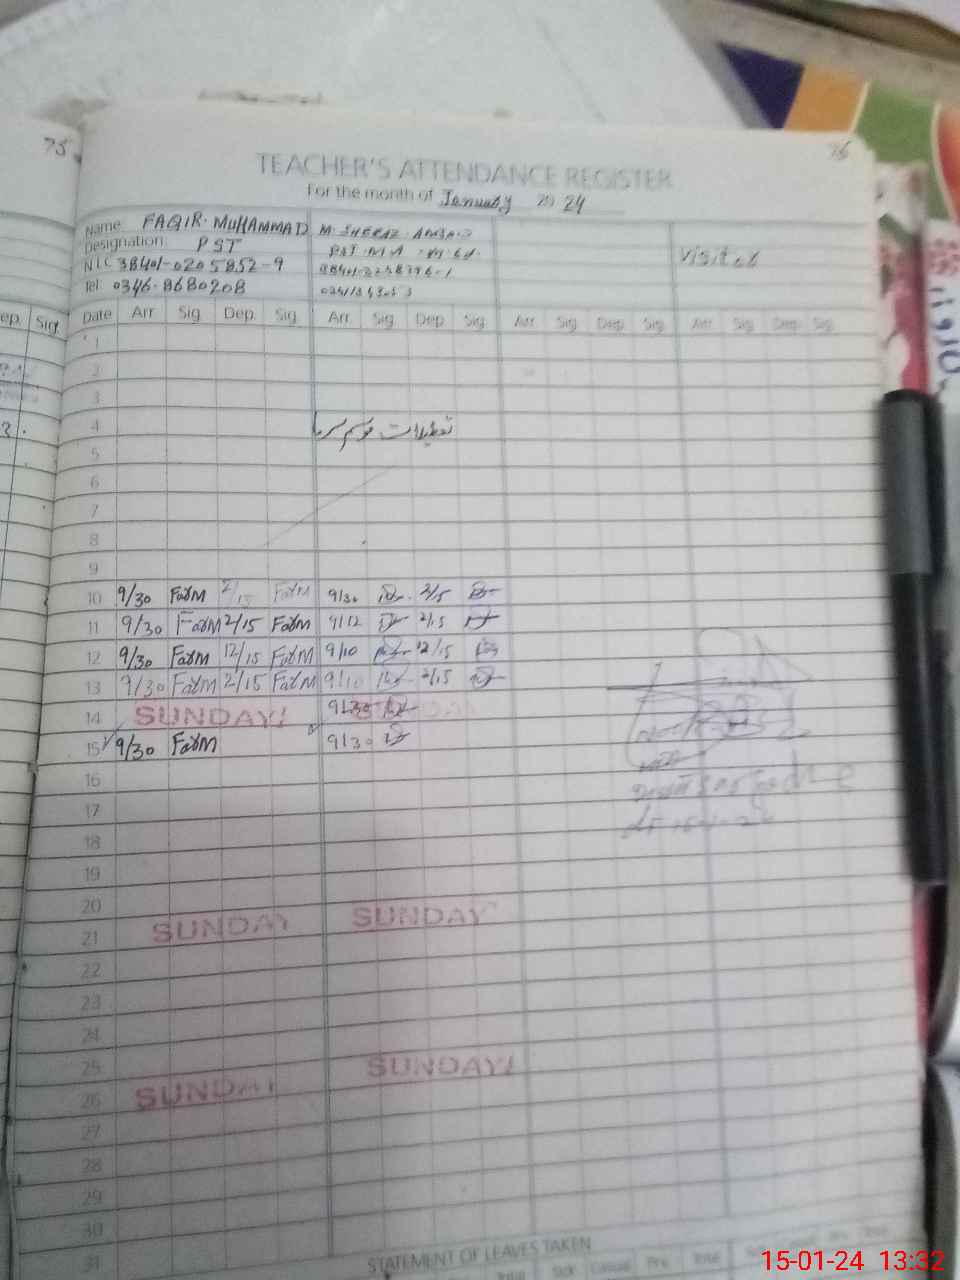 75
76
TEACHER'S ATTENDANCE REGISTER
For the month of January 20 24
Name FAQIR. MUHAMMAD M. SHERAZ
Designation PST PST M.A
Visitor
NIC 38401-0205852-9
Tel. 0346-8680208
ep. Sig Date Arr. Sig Dep. Sig. Arr. Sig Dep Sig Arr. Sig Dep. Sig Arr. Sig Dep Sig
1
2
3
4 تعطیلات موسم سرما
5
6
7
8
9
10 9/30 FarM 2/15 FarM 9/30 2/15
11 9/30 FarM 2/15 FarM 9/12 2/15
12 9/30 FarM 12/15 FarM 9/10 12/15
13 9/30 FarM 2/15 FarM 9/10 2/15
14 SUNDAY! 9/30 SUNDAY
15 9/30 FarM 9/30
16
17
18
19
20
21 SUNDAY SUNDAY
22
23
24
25 SUNDAY!
26 SUNDAY
27
28
29
30
31
STATEMENT OF LEAVES TAKEN
Total Sick Casual Prv. Total
15-01-24 13:32